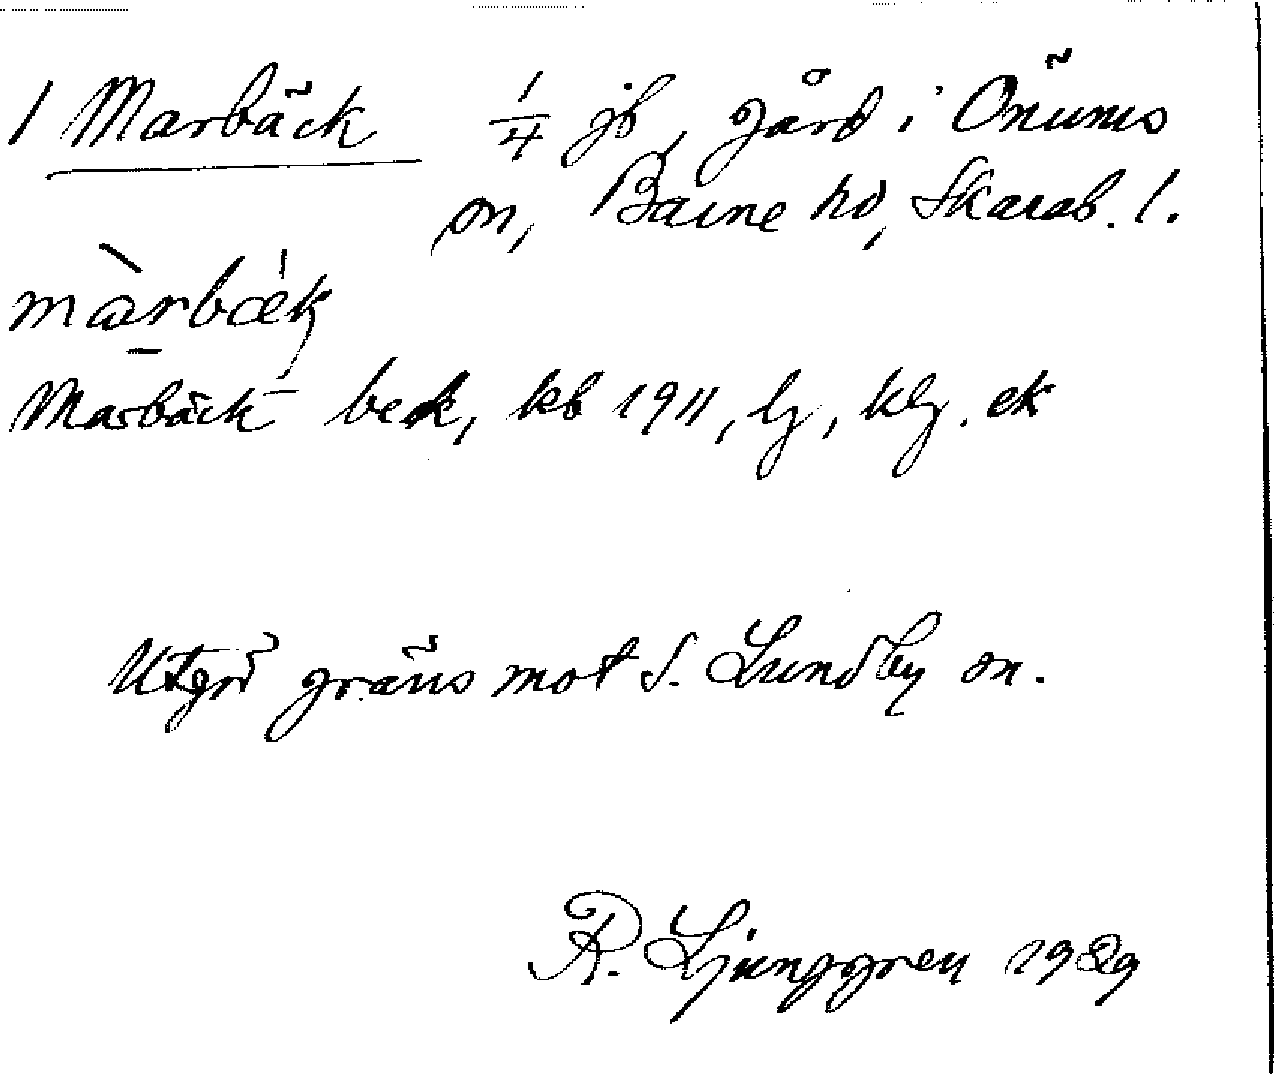 1 Marbäck 1/4 jb, gård i Önums
sn, Barne hd, Skarab. l.
màrbæk
Marbäck bek, kb 1911, lj, klj. ek
Utgör gräns mot S. Lundby sn.
R. Ljunggren 1929